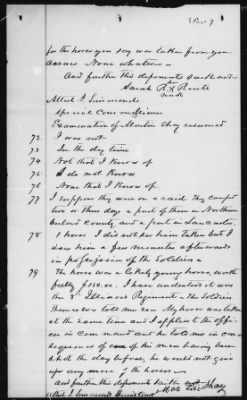 for the horse you say was taken from you
answer None whatever
And further this deponent saith not
her
Sarah R X Roulk
mark
Albert I Simmonds
Special Commissioner
Examination of Marton Shay resumed
72 I was not
73 In the day time
74 Not that I know of
75 I do not know
76 None that I know of
77 I suppose they were on a raid. They camped
two or three days a part of them in Northum
berland county and a part in Lancaster
78 I have. I did not see him taken but I
saw him a few minutes afterwards
in possession of the soldiers
79 The horse was a likely young horse, worth
fully $150.00. I have understood it was
the 8th Illinois Regiment. The Soldiers
themselves told me so. My horse was taken
at the same time and I applied to the offi-
cer in command and he told me in con
sequence of one of his men having been
shot the day before, he would not give
up any more of the horses
and further this deponent saith not
Shay